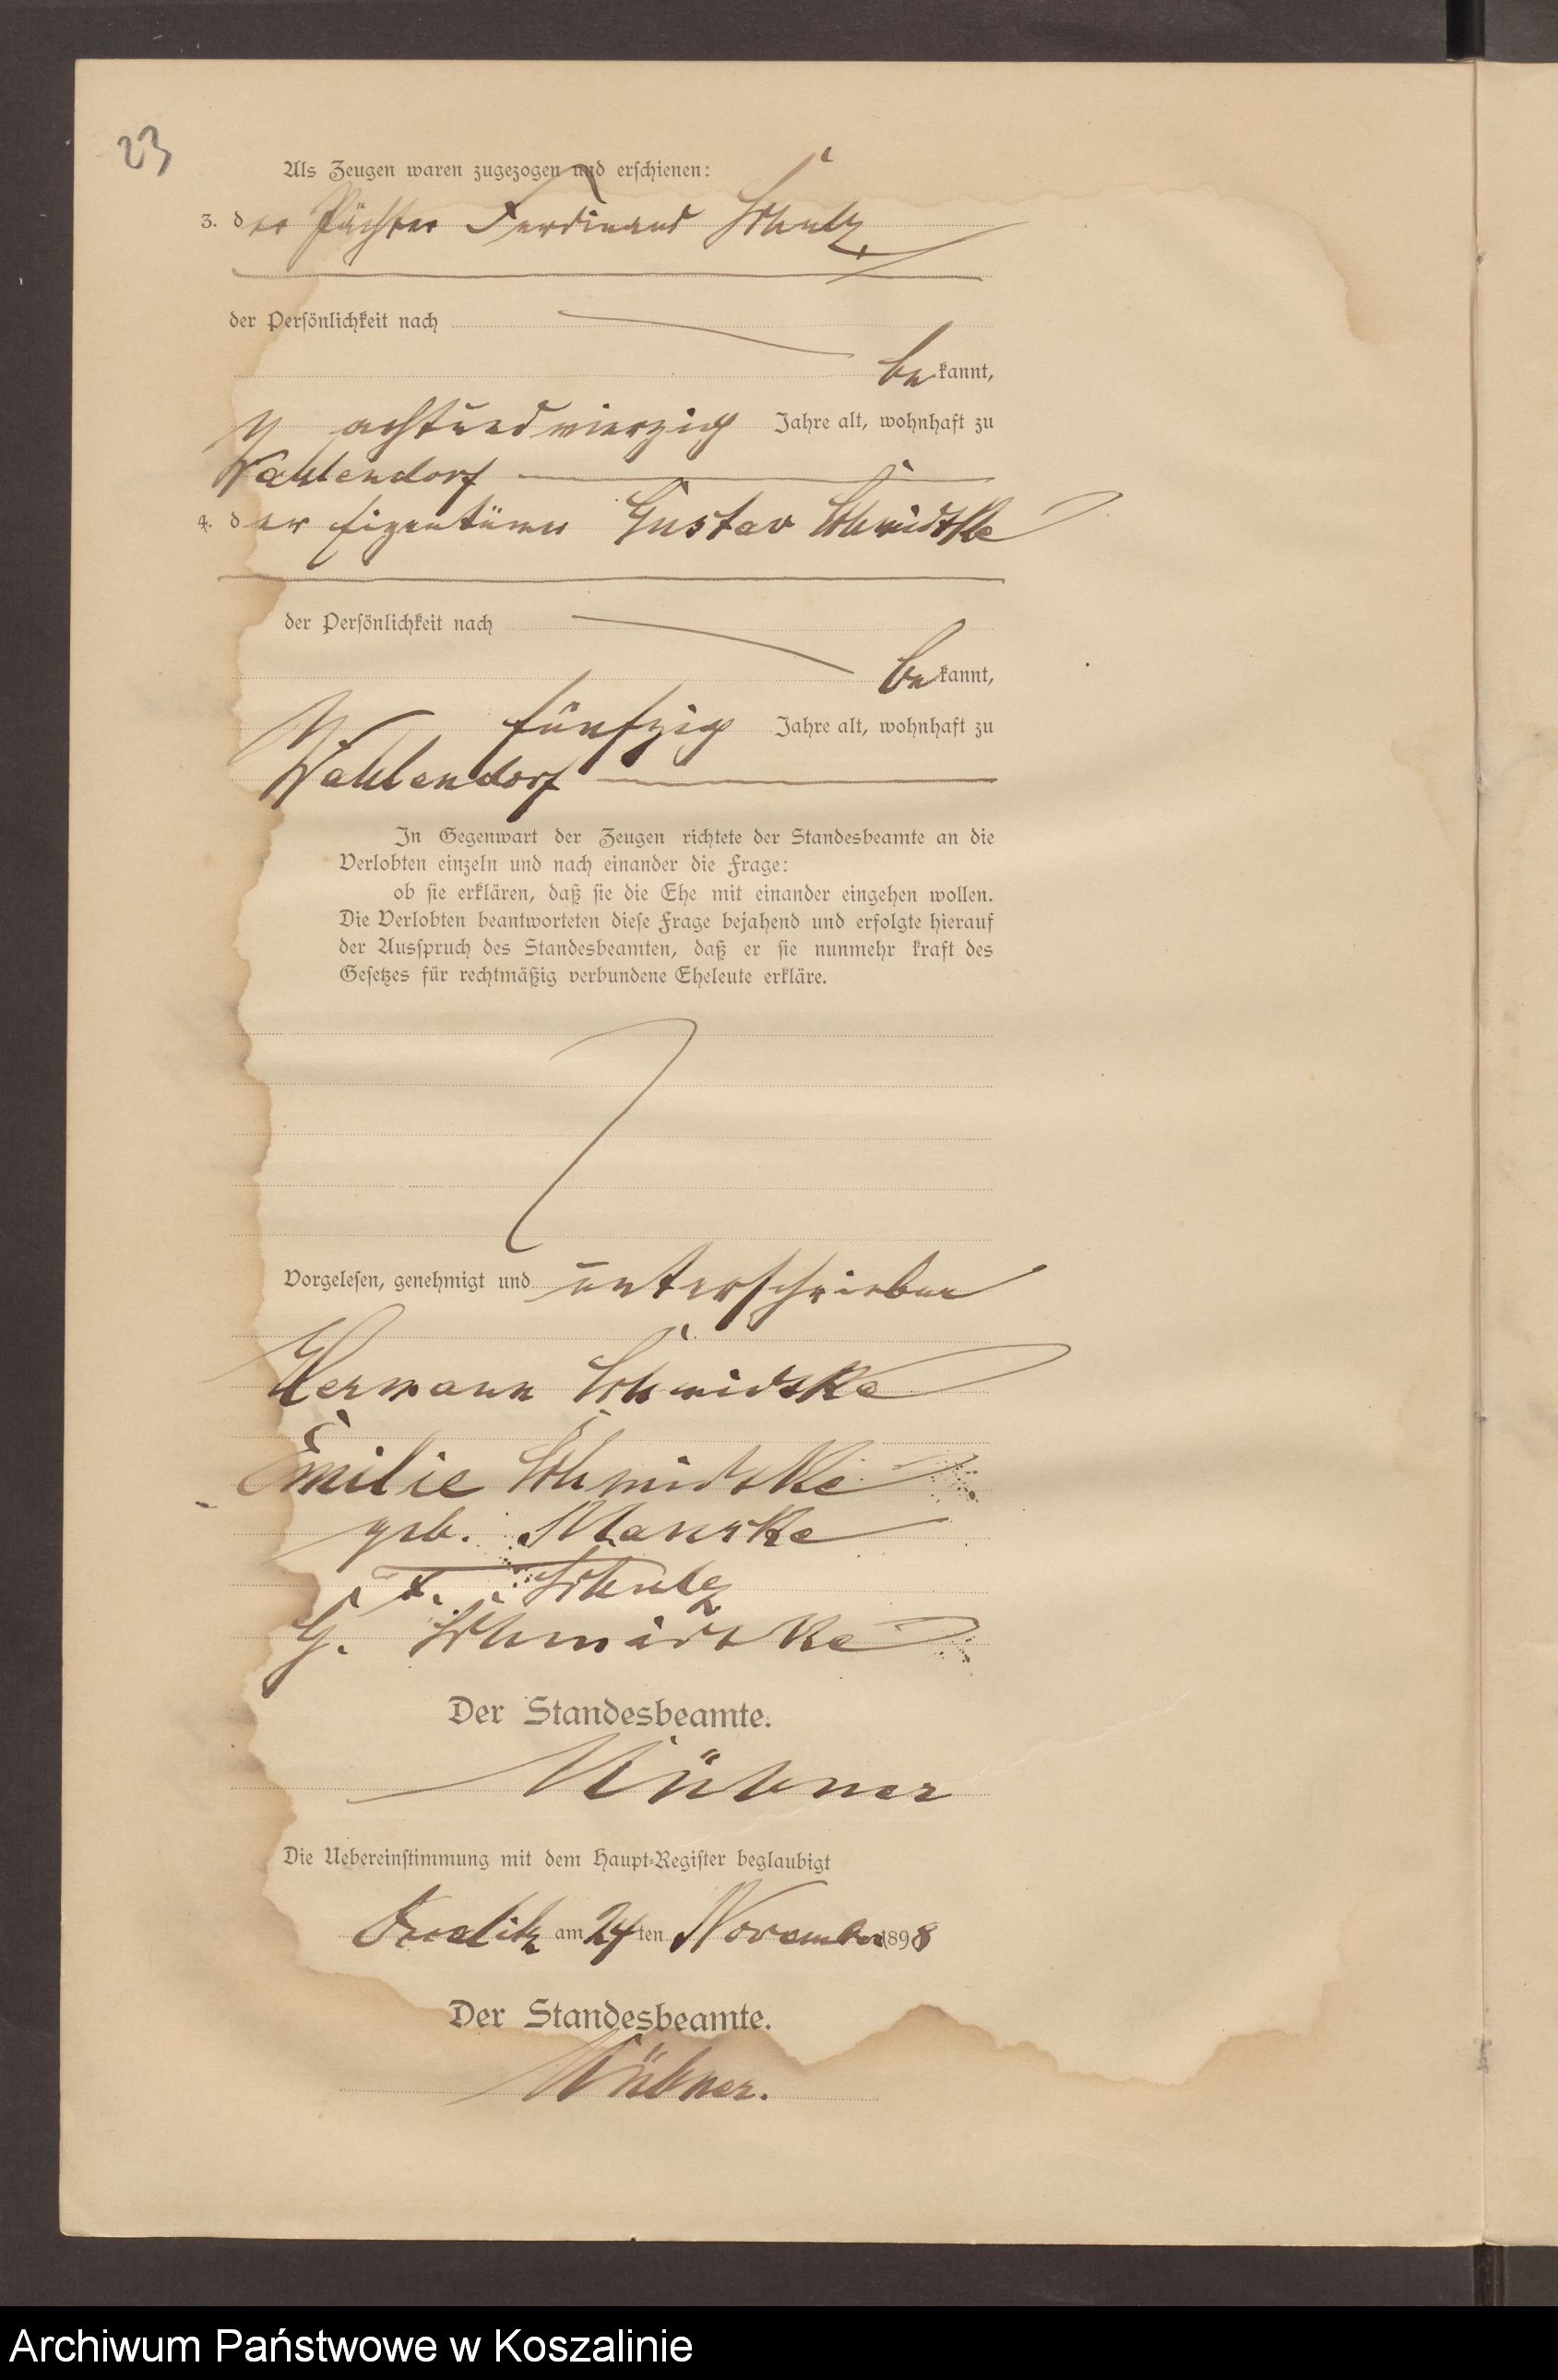 23
Als Zeugen waren zugezogen und erschienen:
3. der Pächter Ferdinand Schulz
der Persönlichkeit nach
bekannt,
achtundvierzig Jahre alt, wohnhaft zu
Wahlendorf
4. der Eigentümer Gustav Schmidtke
der Persönlichkeit nach
bekannt,
fünfzig Jahre alt, wohnhaft zu
Wahlendorf
In Gegenwart der Zeugen richtete der Standesbeamte an die
Verlobten einzeln und nach einander die Frage:
ob sie erklären, daß sie die Ehe mit einander eingehen wollen.
Die Verlobten beantworteten diese Frage bejahend und erfolgte hierauf
der Ausspruch des Standesbeamten, daß er sie nunmehr kraft des
Gesetzes für rechtmäßig verbundene Eheleute erkläre.
Vorgelesen, genehmigt und unterschrieben
Hermann Schmidtke
Emilie Schmidtke
geb. Manske
F. Schulz
G. Schmidtke
Der Standesbeamte.
Die Uebereinstimmung mit dem Haupt-Register beglaubigt
am 24ten November 1898
Der Standesbeamte.
Archiwum Państwowe w Koszalinie